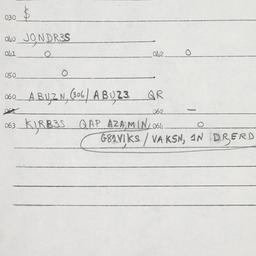 030 $
040 JONDR3S
041 O 042 O
050 O
060 ABUZN, (306/ABUZ3 QR
062 –
063 KIRB3S QAP AZAMIN, 061 O
G82VIKS / VAKSN, IN DRERD